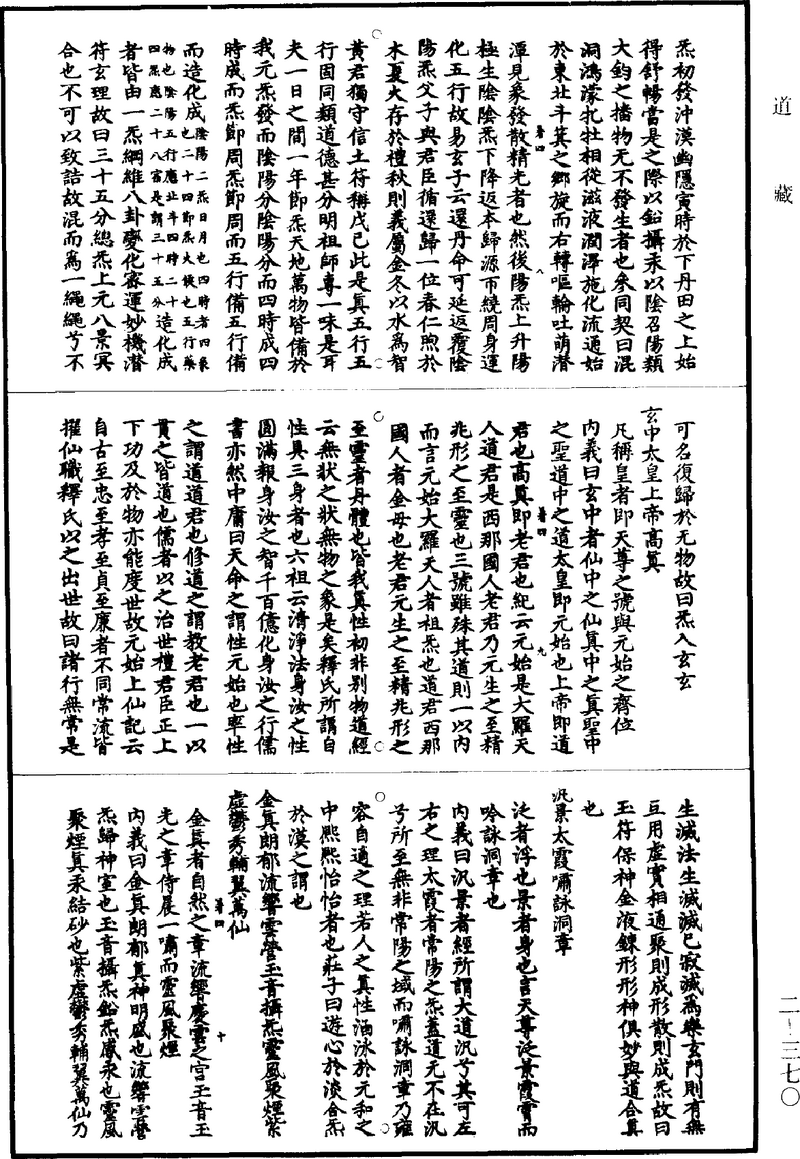 道藏
炁初發沖漠幽隱寅時於下丹田之上始
得舒暢當是之際以鉛攝汞以陰召陽類
大鈞之播物无不發生者也叅同契曰混
洞鴻濛牝牡相從滋液潤澤施化流通始
於東北斗箕之鄉旋而右轉嘔輪吐萌潛
潭見象發散精光者也然後陽炁上升陽
極生陰陰炁下降返本歸源帀繞周身運
化五行故易玄子云還丹命可延返覆陰
陽炁父子與君臣循還歸一位春仁煦於
木夏火存於禮秋則義屬金冬以水爲智
黄君獨守信土符稱戊己此是真五行五
行固同類道德甚分明祖師專一味是耳
夫一日之間一年節炁天地萬物皆備於
我元炁發而陰陽分陰陽分而四時成四
時成而炁節周炁節周而五行備五行備
而造化成陰陽二炁日月也四時者四象也二十四節炁火候也五行藥物也陰陽五行應北斗四時二十四炁應二十八宿是謂三十五分造化成
者皆由一炁綱維八卦變化宻運妙機潛
符玄理故曰三十五分總炁上元八景冥
合也不可以致詰故混而爲一繩繩兮不
著四 八
可名復歸於无物故曰炁入玄玄
玄中太皇上帝高真
凡稱皇者即天尊之號與元始之齊位
内義曰玄中者仙中之仙真中之真聖中
之聖道中之道太皇即元始也上帝即道
君也高真即老君也紀云元始是大羅天
人道君是西那國人老君乃元生之至精
兆形之至靈也三號雖殊其道則一以内
而言元始大羅天人者祖炁也道君西那
國人者金母也老君元生之至精兆形之
至靈者丹體也皆我真性初非别物道經
云無狀之狀無物之象是矣釋氏所謂自
性具三身者也六祖云清淨法身汝之性
圓滿報身汝之智千百億化身汝之行儒
書亦然中庸曰天命之謂性元始也率性
之謂道道君也修道之謂教老君也一以
貫之皆道也儒者以之治世禮君臣正上
下功及於物亦能度世故元始上仙記云
自古至忠至孝至貞至廉者不同常流皆
擢仙職釋氏以之出世故曰諸行無常是
著四 九
生滅法生滅滅已寂滅爲樂玄門則有無
互用虚實相通聚則成形散則成炁故曰
玉符保神金液鍊形形神俱妙與道合真
也
汎景太霞嘯詠洞章
泛者浮也景者身也言天尊泛景霞霄而
吟詠洞章也
内義曰汎景者經所謂大道汎兮其可左
右之理太霞者常陽之炁蓋道无不在汎
兮所至無非常陽之域而嘯詠洞章乃雍
容自適之理若人之真性涵泳於元和之
中熙熙怡怡者也莊子曰遊心於淡合炁
於漠之謂也
金真朗郁流響雲營玉音攝炁靈風聚煙紫
虚鬱秀輔翼萬仙
金真者自然之章流響慶雲之宫玉音玉
光之章侍晨一嘯而靈風聚煙
内義曰金真朗郁真神明盛也流響雲營
炁歸神室也玉音攝炁鉛炁感汞也靈風
聚煙真汞結砂也紫虚鬱秀輔翼萬仙乃
著四 十
二－三七〇